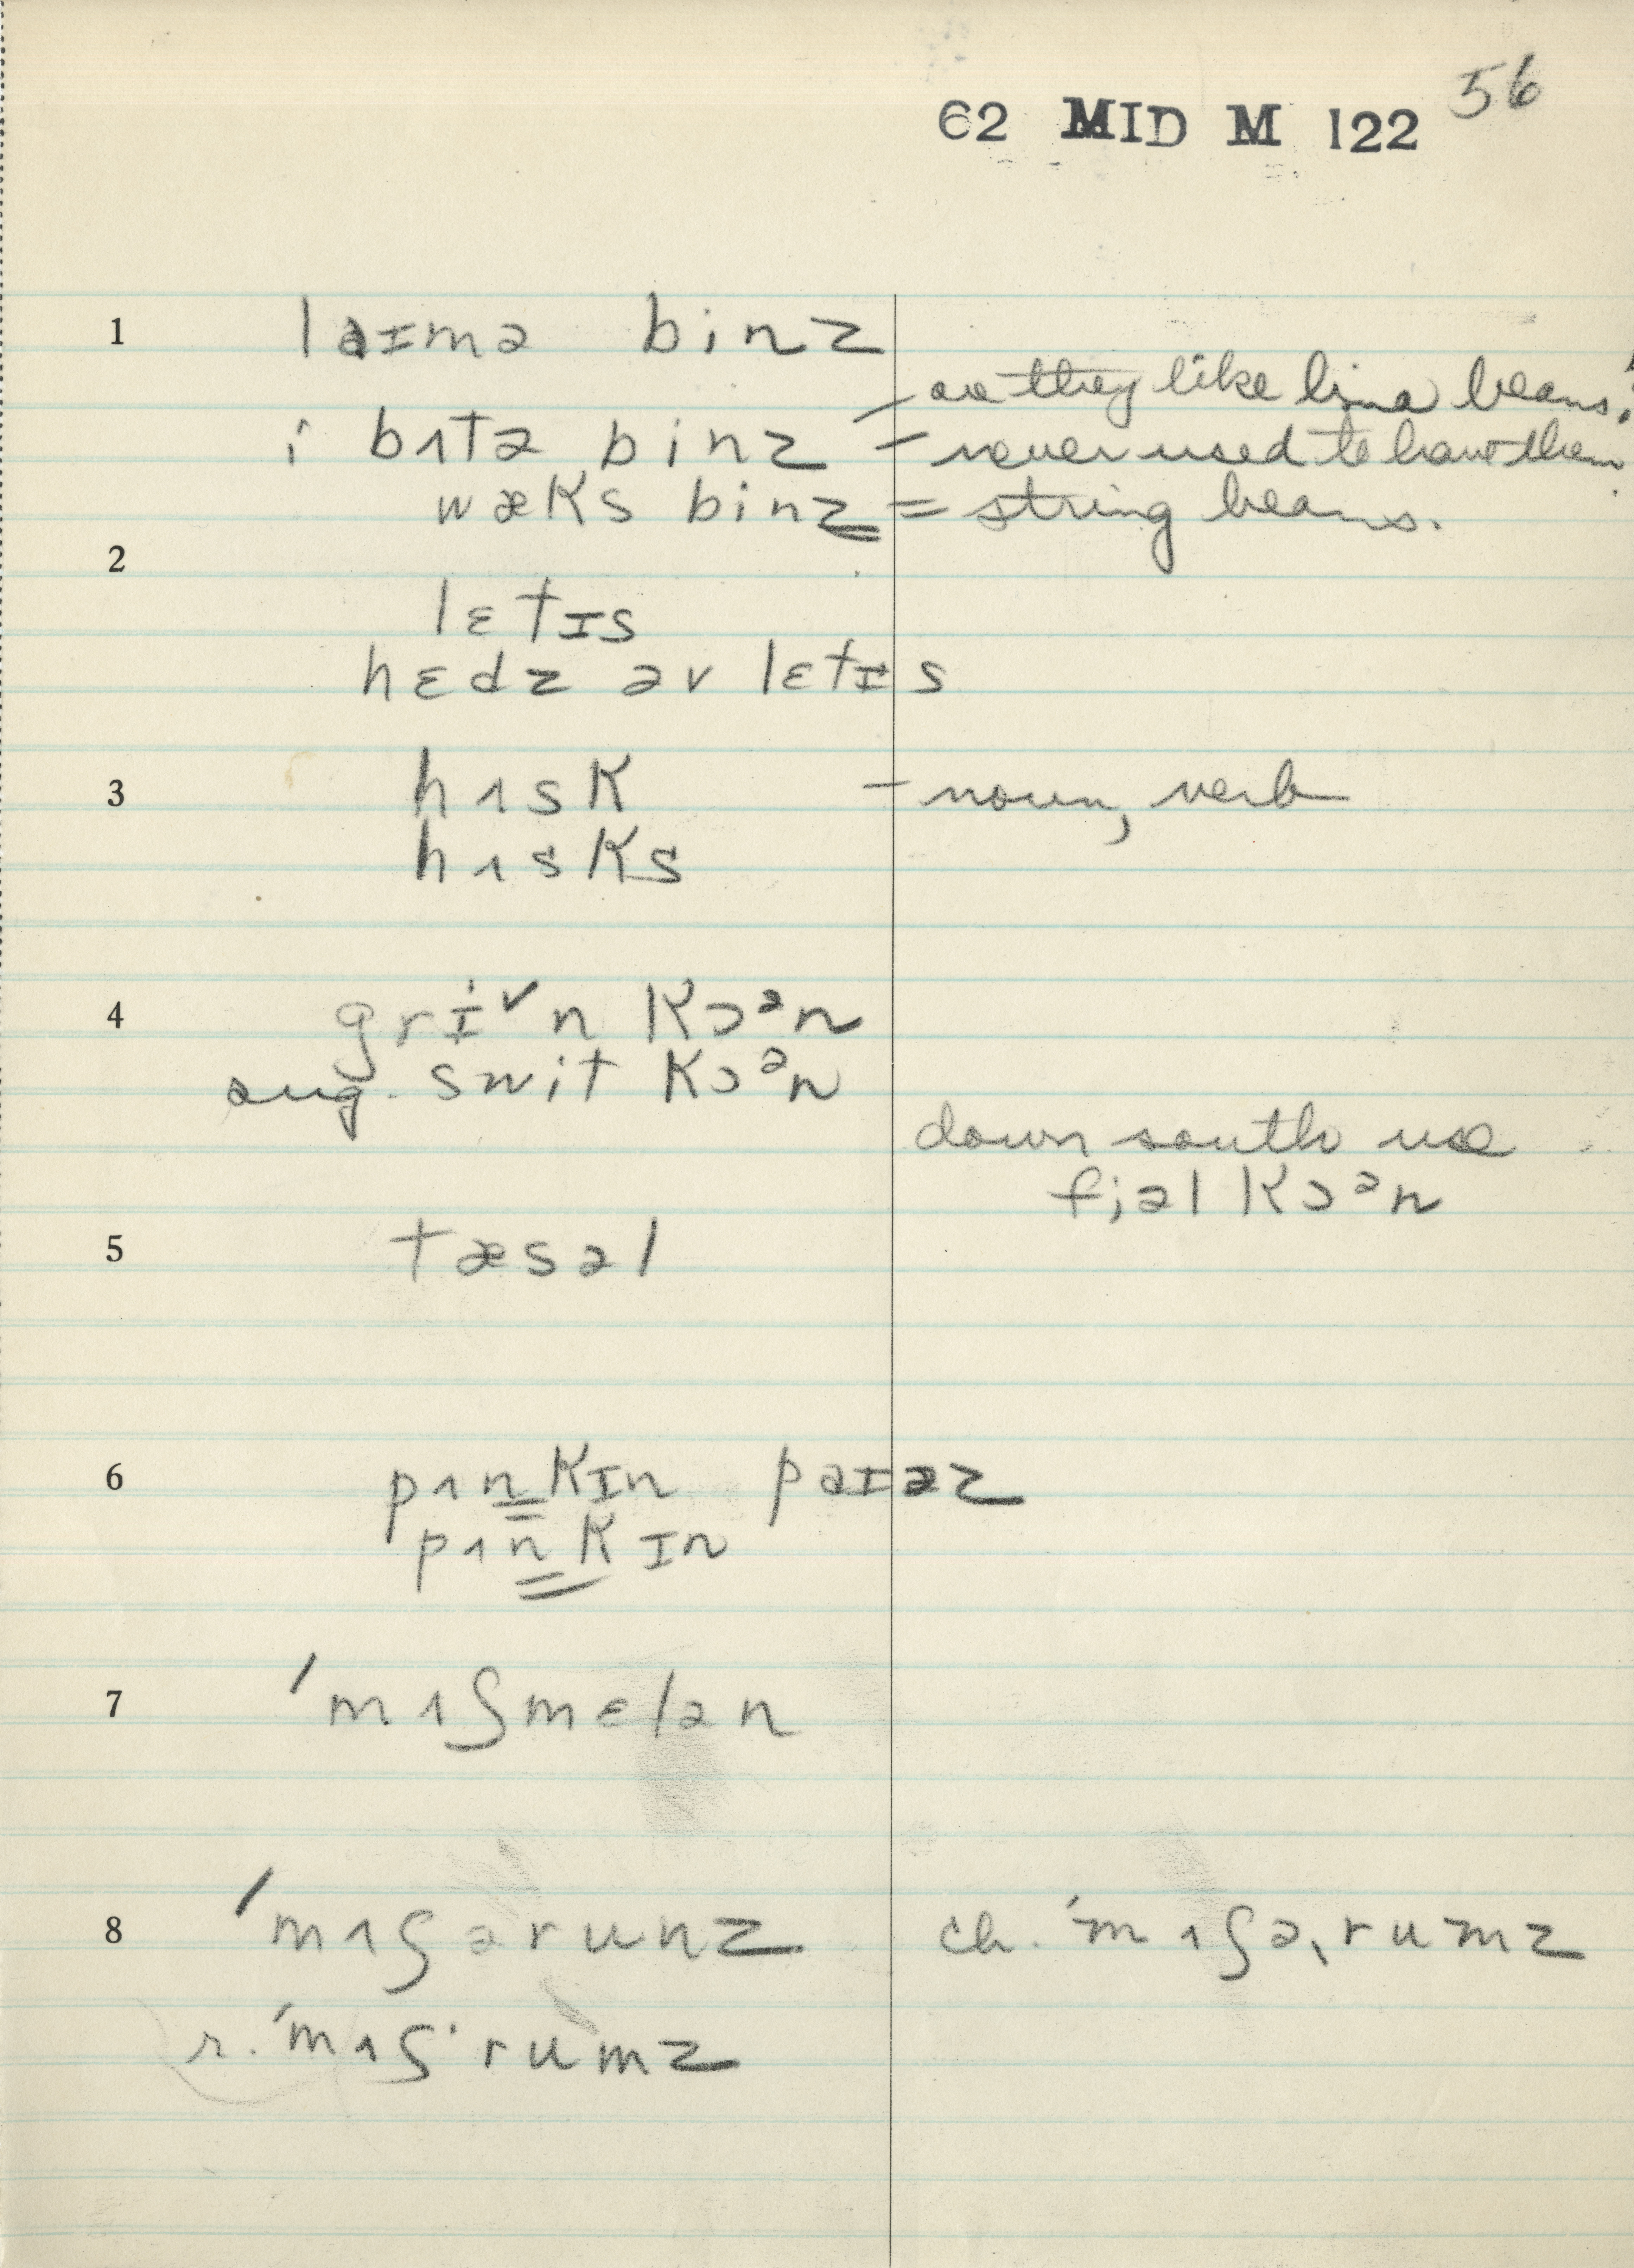 56
62 MID M 122
1 laɪmə binz
– are they like lima beans?
i bʌtə binz – never used to have them.
wæks binz = string beans.
2
lɛtɪs
hɛdz əv lɛtɪs
3 hʌsk – noun, verb
hʌsks
4 gri˅n kɔᵊn
sug. swit kɔᵊn
down south use
fiəl kɔᵊn
5 tæsəl
6 pʌnkɪn paɪəz
pʌnkɪn
7 ˈmʌʃmɛlən
8 ˈmʌʃərunz ch. ˈmʌʃəˌrumz
r. ˈmʌʃ·rumz